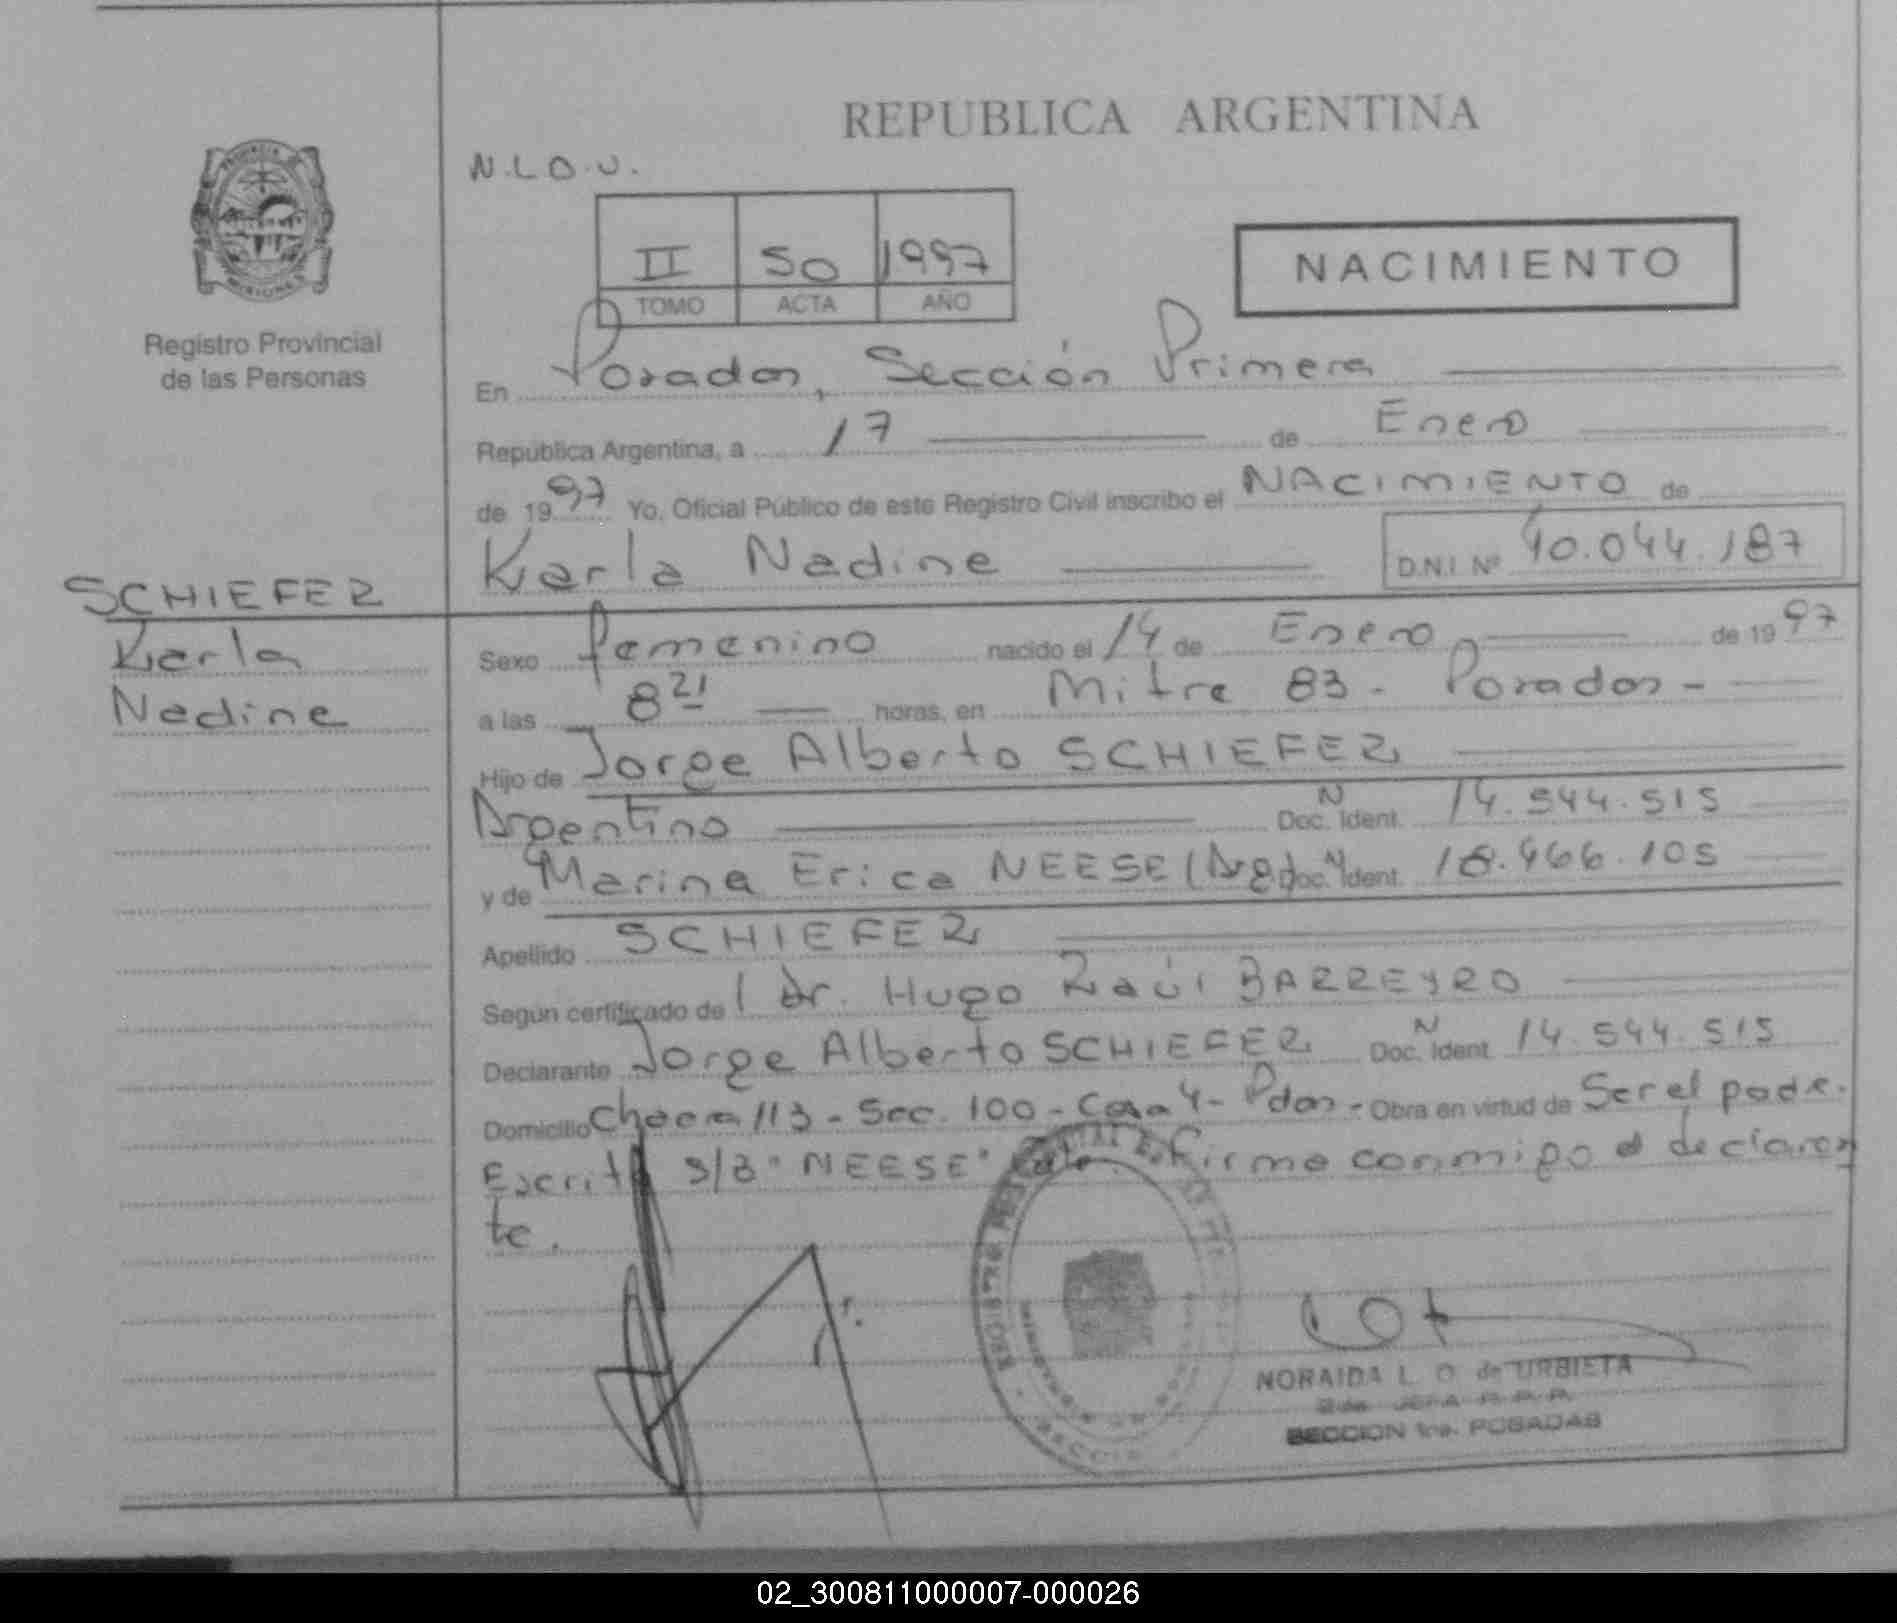 REPUBLICA ARGENTINA
N.L.O.U.
II 50 1997
TOMO ACTA AÑO
NACIMIENTO
PROVINCIA DE MISIONES
Registro Provincial
de las Personas
En Posadas, Sección Primera
República Argentina, a 17 de Enero
de 1997 Yo, Oficial Público de este Registro Civil inscribo el NACIMIENTO de
Karla Nadine D.N.I. Nº 40.044.187
SCHIEFER
Karla
Nadine
Sexo femenino nacido el 14 de Enero de 1997
a las 8 21 horas, en Mitre 83 - Posadas -
Hijo de Jorge Alberto SCHIEFER
Argentino N Doc. Ident. 14.544.515
y de Marina Erica NEESE (Arg) N Doc. Ident. 18.466.105
Apellido SCHIEFER
Según certificado de l Dr. Hugo Raúl BARREYRO
Declarante Jorge Alberto SCHIEFER N Doc. Ident. 14.544.515
Domicilio Chacra 113 - Sec. 100 - Casa 4 - Pdas - Obra en virtud de Ser el padre.
Escrito S/B "NEESE" Vale. Firma conmigo el declaran
te.
NORAIDA L. O. de URBIETA
2da JEFA R.P.P.
SECCION 1ra. POSADAS
02_300811000007-000026